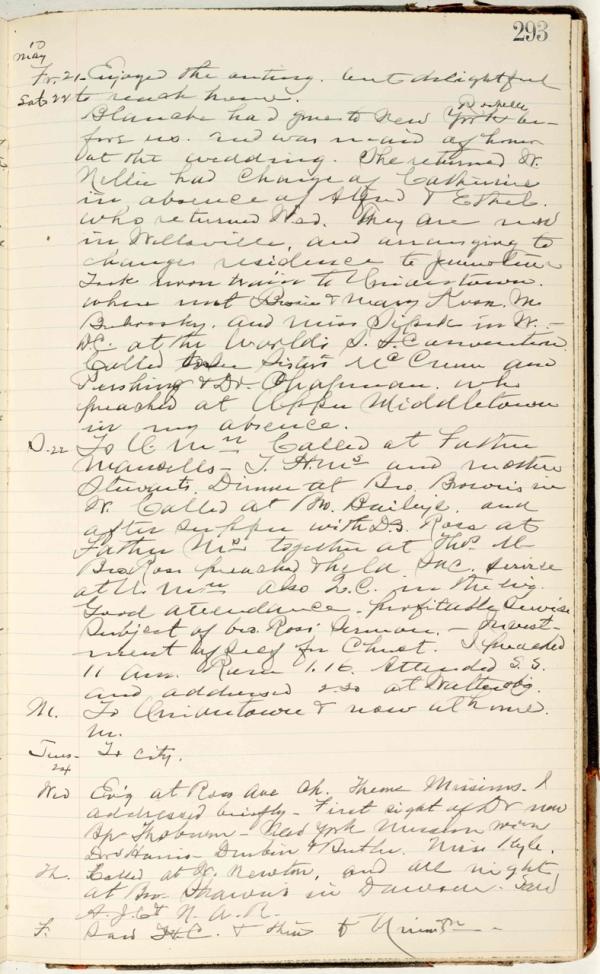 293
10
May
Fr. 21 - Enjoyed the outing. but delightful
Sat 22 to reach home.
Rochelle
Blanche had gone to New York be-
fore us. and was maid of honor
at the wedding. She returned W.
Nellie had charge of Catharine
in absence of Alfred & Ethel.
who returned Wed. They are now
in Wellsville, and arranging to
change residence to
Took noon train to Uniontown.
where met & Mary
and Miss in W. -
D.C. at the World's S. S. Convention.
Called to see Sisters McCrum and
Pershing & Dr. Chapman. who
preached at Upper Middletown
in my absence.
D. 22 To U. Mn Called at Father
Mansells - T. H. Ms and mother
Stewarts. Dinner at Bro. Brown's in
W. Called at Bro. Baileys. and
after supper with D.S. Ross at
Father Ms together at Thos. M.
Bro Ross preached & held Sac. service
at U. Mn also Q.C. in the
Good attendance. profitable service
Subject of bro. Ross' sermon. - Invest-
ment of self for Christ. I preached
11 am. Rom 1.16. Attended S. S.
and addressed
M. To Uniontown & now at home.
m.
Tues - To city.
24
Wed Ev'g at Ross Ave Ch. Theme Missions. I
addressed briefly - First sight of Dr now
Bp Thoburn - New York Mission with
Drs Harris Durbin & Butler. Miss Kyle.
Th. Called at W. Newton, and all night
at Bro. in Dawson. Said
A. J. C. & N. A. R.
F. & thence to